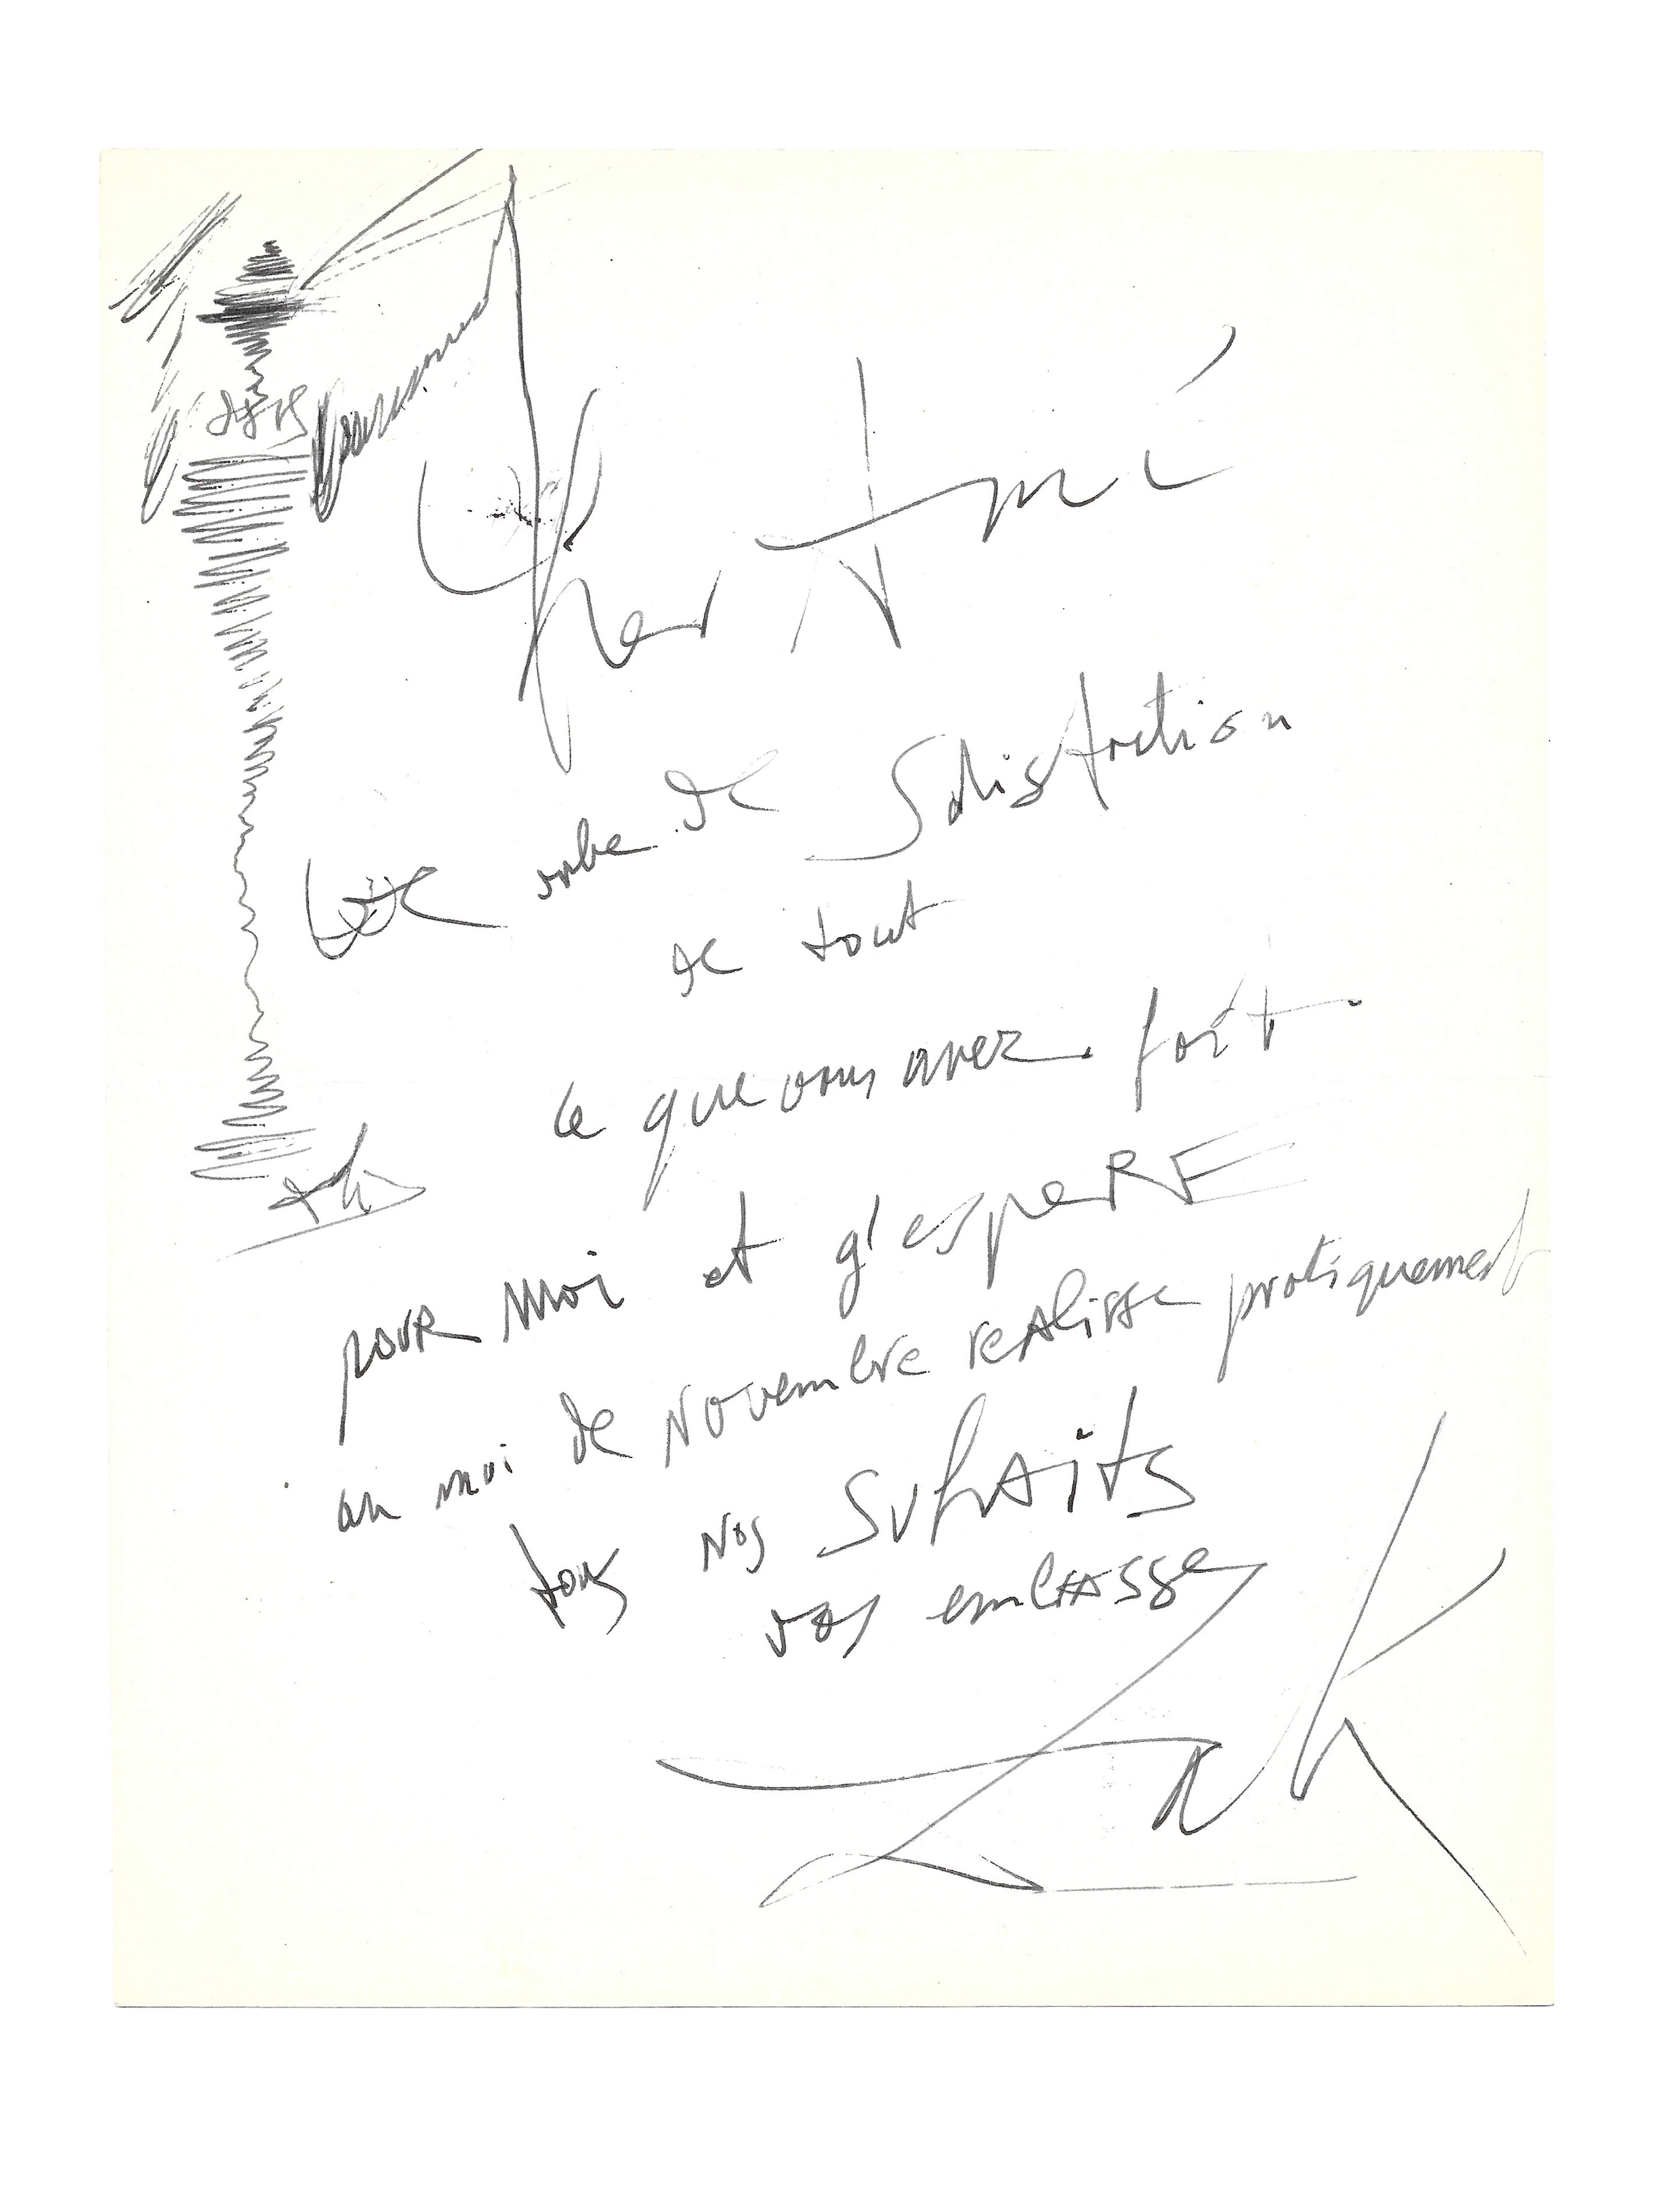 Cher Ami
robe de Satisfaction
de tout
ce que vous avez fait
pour moi et g'espeRE
au moi de Novembre reAlisse pratiquement
tous Nos SuhAits
vos embrAsse